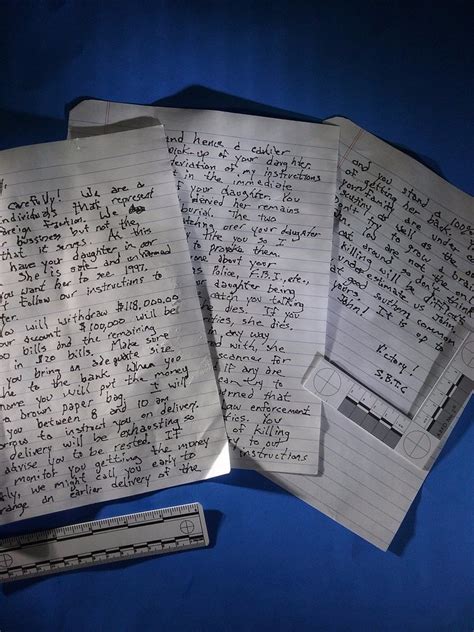 We are a
individuals that represent
oreign faction. We
r bussiness but not the
that it serves. At this
have your daughter in our
She is safe and unharmed
you want her to see 1997,
follow our instructions to
er.
ou will withdraw $118,000.00
our account. $100,000 will be
bills and the remaining
in $20 bills. Make sure
you bring an adequate size
che to the bank. When you
ome you will put the money
a brown paper bag. I will
you between 8 and 10 am
rrow to instruct you on delivery.
delivery will be exhausting so
advise you to be rested. If
monitor you getting the money
rly, we might call you early to
range an earlier delivery of the
and hence a earlier
pick-up of your daughter
deviation of my instructions
in the immediate
f your daughter. You
denied her remains
burial. The two
over your daughter
like you so I
to provoke them.
one about your
Police, F.B.I., etc.,
daughter being
catch you talking
dies. If you
ties, she dies.
in any way
ed with, she
scanned for
if any are
can try to
rned that
law enforcement
ties. You
of killing
try to out
instructions
and you stand a 100%
of getting her back.
your family are under
scrutiny as well as the
Don't try to grow
are not the only
cat around so don't think
killing will be difficult.
underestimate us John.
good southern common
It is up to
John!
Victory!
S.B.T.C